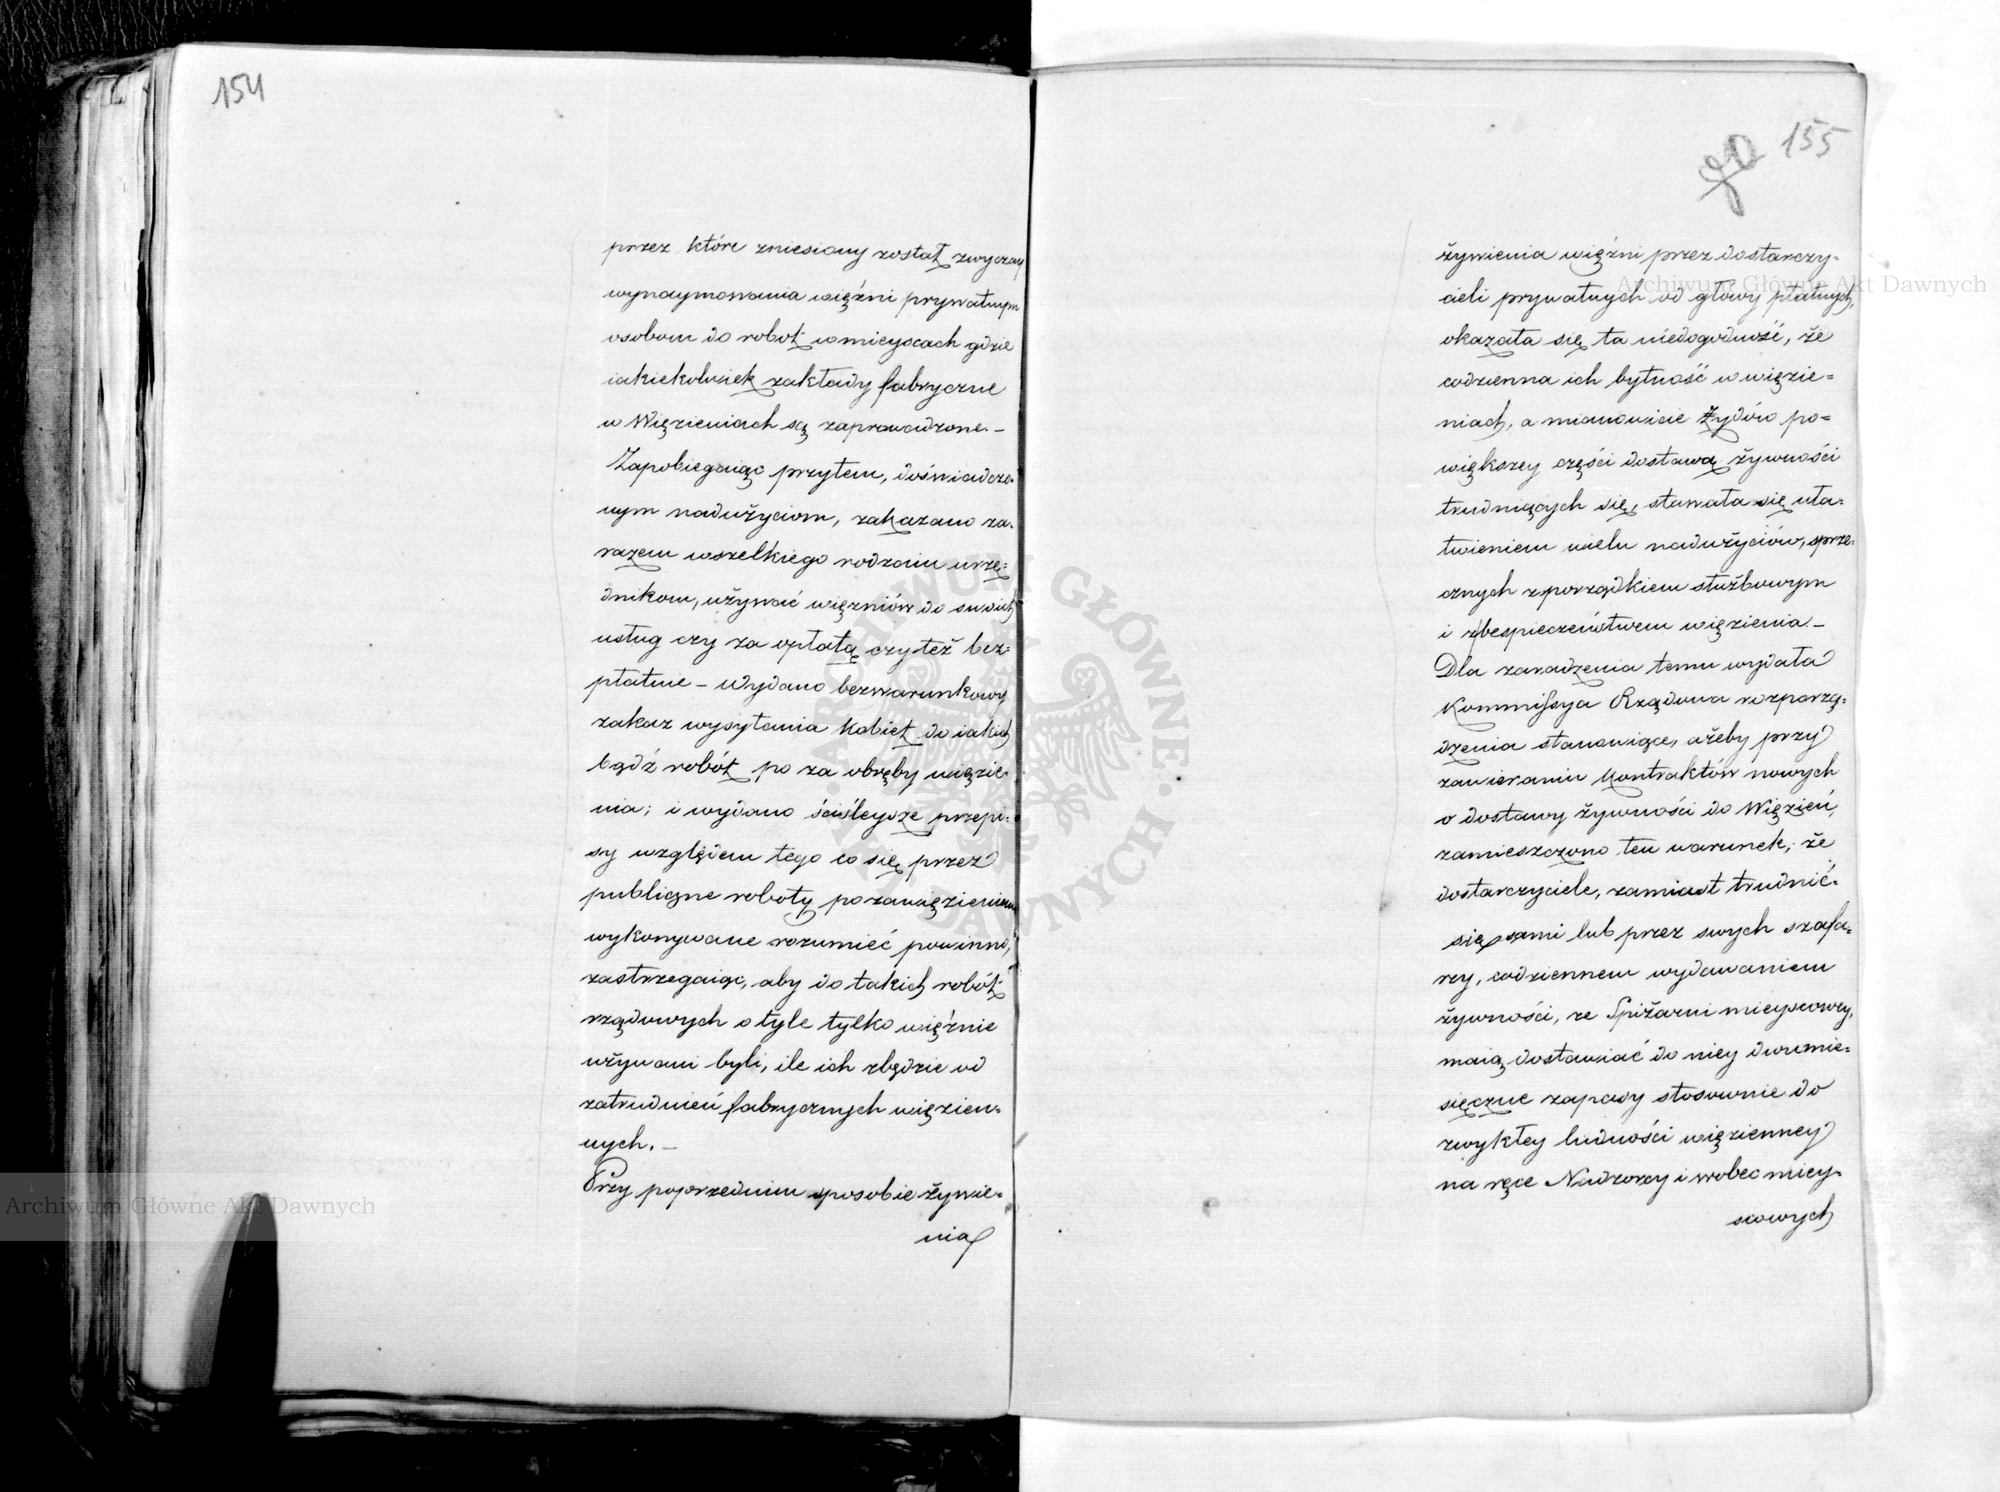 154
przez które zniesiony został zwyczay
wynaymowania więźni prywatnym
osobom do robot w mieyscach gdzie
iakiekolwiek zakłady fabryczne
w Więzieniach są zaprowadzone. –
Zapobiegaiąc przytem, doświadczo-
nym nadużyciom, zakazano za-
razem wszelkiego rodzaiu urzę=
dnikom, używać więzniów do swoich
usług czy za opłatą czy też bez=
płatnie – Wydano bezwarunkowy
zakaz wysyłania Kobiet do iakich
bądź robót po za obręby więzie-
nia; i wydano ściśleysze przepi-
sy względem tego co się przez
publiczne roboty po za więzieniem
wykonywane rozumieć powinno,
zastrzegaiąc, aby do takich robót
rządowych o tyle tylko więźnie
używani byli, ile ich zbędzie od
zatrudnień fabrycznych więzien-
nych. –
Przy poprzednim sposobie żywie-
nia
155
żywienia więźni przez dostarczy-
cieli prywatnych od głowy płatnych,
okazała się ta niedogodność, że
codzienna ich bytność w więzie=
niach, a mianowicie Żydów po=
większey części dostawą żywności
trudniących się, stawała się uła-
twieniem wielu nadużyciów, sprze-
cznych z porządkiem służbowym
i z bespieczeństwem więzienia. –
Dla zaradzenia temu wydała
Kommissya Rządowa rozporzą-
dzenia stanowiące, ażeby przy
zawieraniu Kontraktów nowych
o dostawy żywności do Więzień,
zamieszczono ten warunek, że
dostarczyciele, zamiast trudnić
się sami lub przez swych szafa-
rzy, codziennem wydawaniem
żywności, ze Spiżarni mieyscowey,
maią dostawiać do niey dwumie-
sięczne zapasy stosownie do
zwykłey ludności więzienney
na ręce Nadzorcy i wobec miey-
scowych
Archiwum Główne Akt Dawnych
Archiwum Główne Akt Dawnych
ARCHIWUM GŁÓWNE AKT DAWNYCH